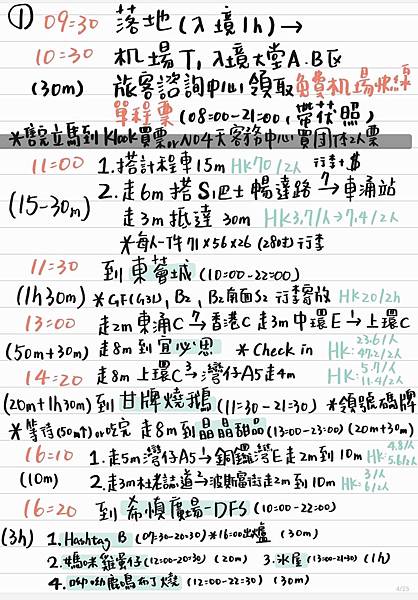 ① 09:30 落地(入境1h)→
10:30 机場T1入境大堂A.B区
(30m) 旅客諮詢中心領取免費机場快線
單程票(08:00-21:00,帶花照)
11:00 1.搭計程車15m HK70/2人 行李+$
(15-30m) 2.走6m搭S1巴士暢達路→7車涌站
走3m抵達 30m HK3.7/人→7.4/2人
*每人一件71×56×26(28吋)行李
11:30 到東薈城(10:00-22:00)
(1h30m) *GF(G31), B2, B2南面S2 行李寄放 HK20/2h
13:00 走2m東涌C→7香港C走3m中環E→1上環C
(50m+30m) 走8m到宜必思 *Check in HK:23.6/人 47.2/2人
14:20 走8m上環C→3灣仔A5走4m HK:5.7/人 11.4/2人
(20m+1h30m) 到甘牌燒鵝(11:30-21:30) *領號碼牌
*等待(50m↑)or吃完 走8m到晶晶甜品(13:00-23:00)(20m+30m)
16:10 1.走5m灣仔A5→銅鑼灣E走2m到10m HK:4.8/人
(10m) 2.走3m杜老誌道→2波斯富街走2m到10m HK:3/人 6/2人
16:20 到希慎廣場-DFS(10:00-22:00)
(3h) 1.Hashtag B (07:30-20:30)*16:00出爐 (30m)
2.媽咪雞蛋仔(12:00-20:30) (20m) 3.氷屋(13:00-21:30) (1h)
4.呦呦鹿鳴布丁燒(12:00-22:30) (30m)
4/25